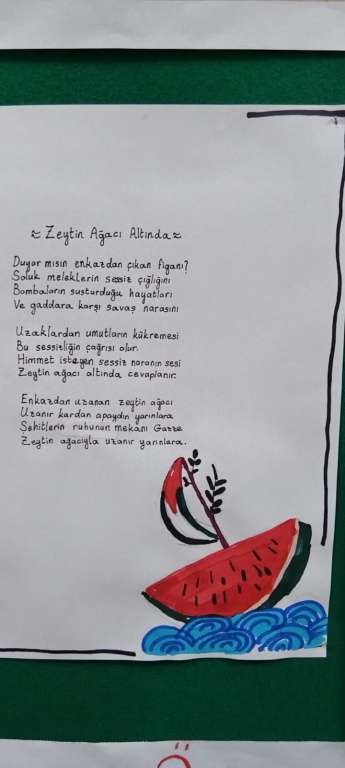 ≈ Zeytin Ağacı Altında ≈
Duyor mısın enkazdan çıkan figanı?
Soluk meleklerin sessiz çığlığını
Bombaların susturduğu hayatları
Ve gaddara karşı savaş narasını
Uzaklardan umutların kükremesi
Bu sessizliğin çağrısı olur.
Himmet isteyen sessiz naranın sesi
Zeytin ağacı altında cevaplanır.
Enkazdan uzanan zeytin ağacı
Uzanır kardan apaydın yarınlara
Şehitlerin ruhunun mekanı Gazze
Zeytin ağacıyla uzanır yarınlara.